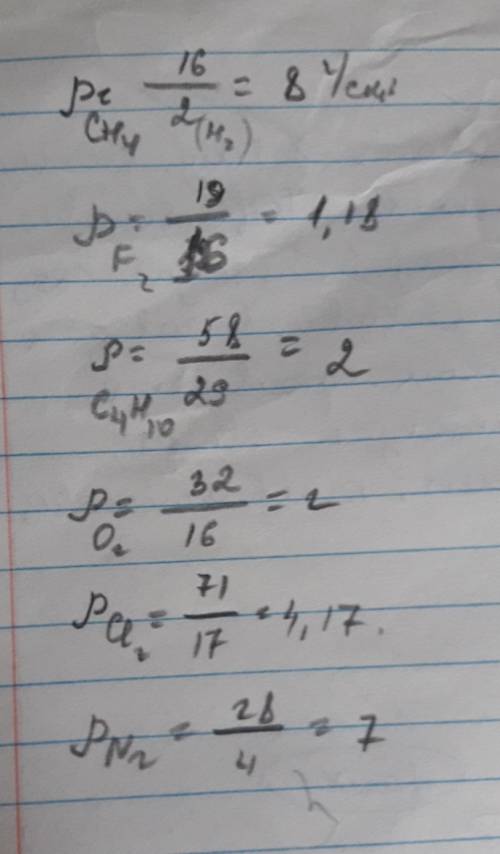 ρ CH₄ = 16 / 2(H₂) = 8 г/см³
ρ F₂ = 19 / 16 = 1,18
ρ C₄H₁₀ = 58 / 29 = 2
ρ O₂ = 32 / 16 = 2
ρ Cl₂ = 71 / 17 = 4,17.
ρ N₂ = 28 / 4 = 7